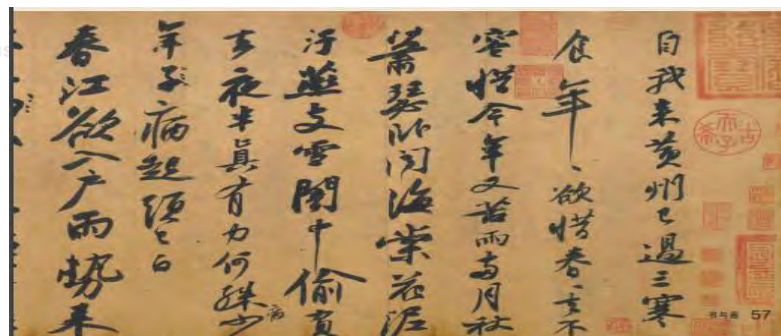 自我来黄州已過三寒
食年〻欲惜春〻去不
容惜今年又苦雨兩月秋
蕭瑟卧聞海棠花泥
汙燕支雪闇中偷負
去夜半真有力何殊少
年子病起頭已白
春江欲入户雨勢来
病
书与画 57